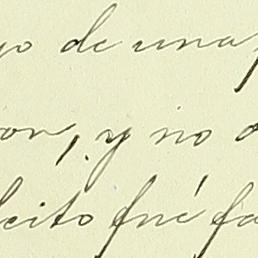 yo de una p
on, y no a
licito fué fa